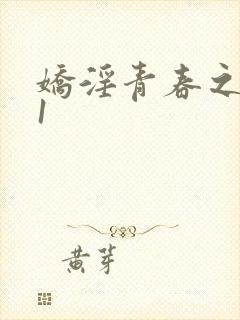 嬌淫青春之
1
黃芽